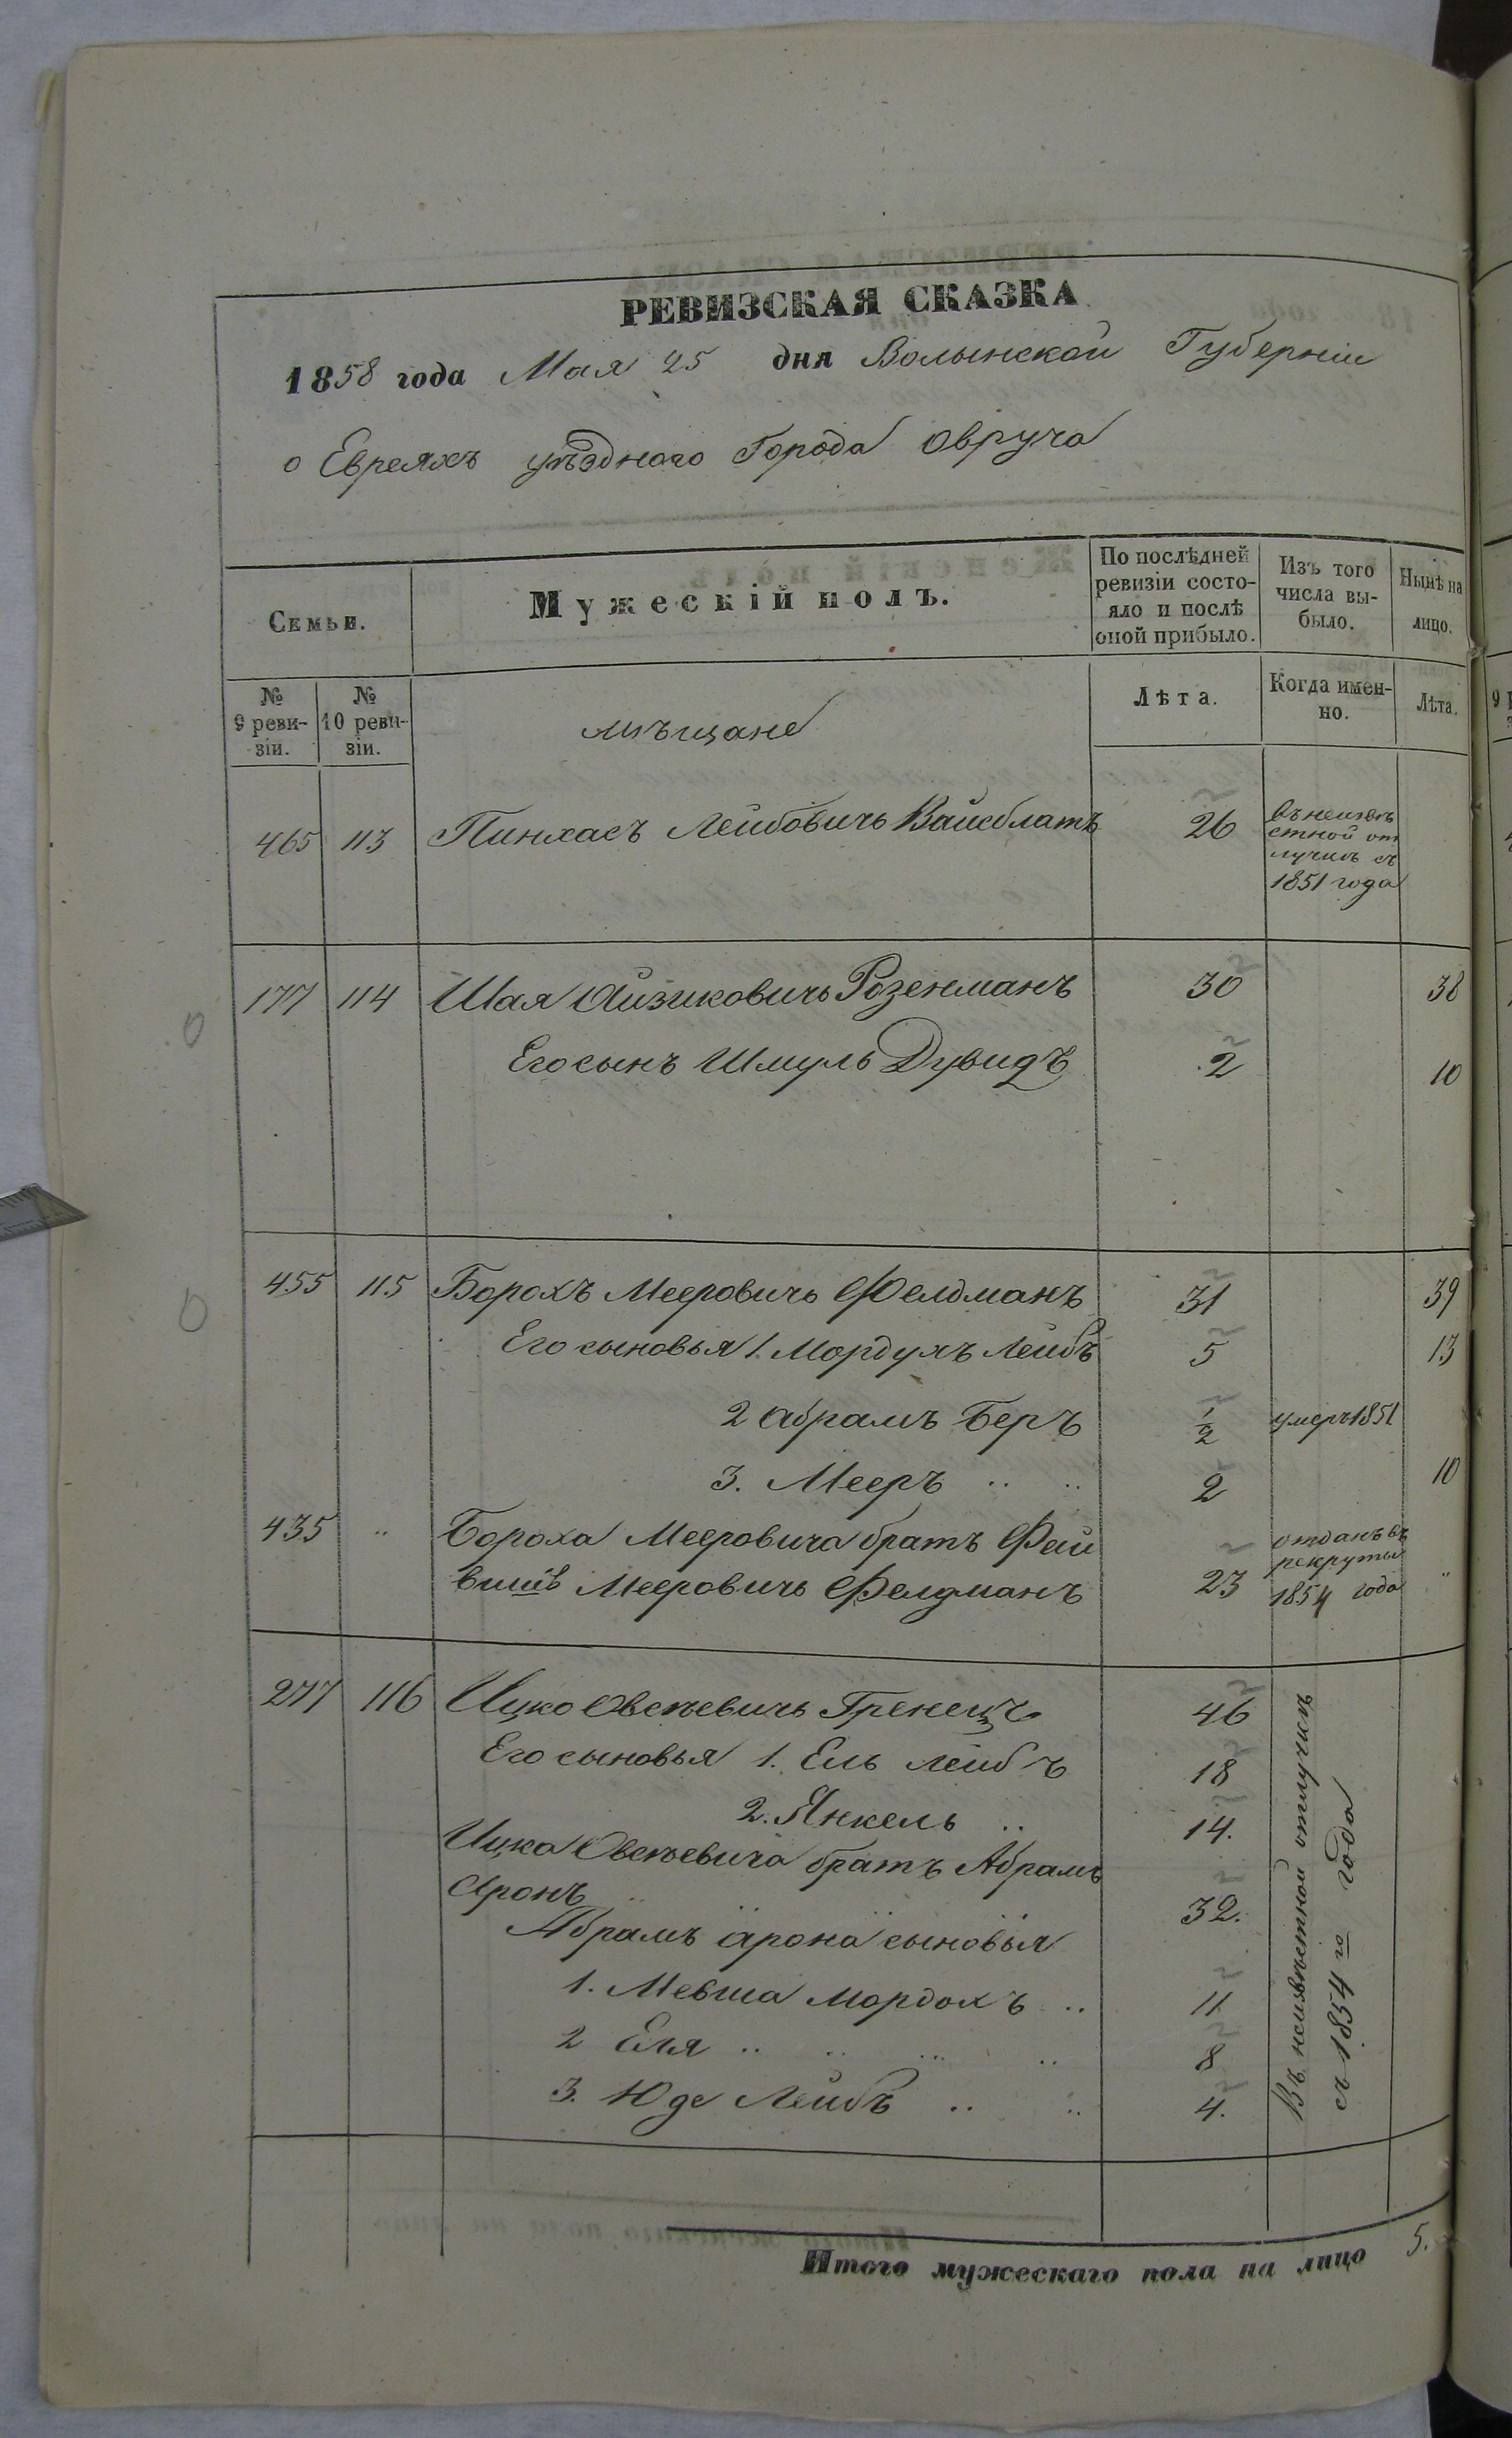 РЕВИЗСКАЯ СКАЗКА
1858 года Мая 25 дня Волынской Губерніи
о Евреяхъ уѣзднаго Города Овруча
Семьи.
Мужескій полъ.
По послѣдней ревизіи состо-
яло и послѣ оной прибыло.
Изъ того числа вы-
было.
Нынѣ на лицо.
№ 9 реви-
зіи.
№ 10 реви-
зіи.
мѣщане
Лѣта.
Когда имен-
но.
Лѣта.
465 113 Пинхасъ Лейбовичь Вайсблатъ 26 въ неизвѣ
стной от
лучкѣ съ
1851 года
177 114 Шая Айзиковичь Розенманъ 30 38
Его сынъ Шмуль Дувидъ 2 10
455 115 Борохъ Мееровичь Фелдманъ 31 39
Его сыновья 1. Мордухъ Лейбъ 5 13
2 Абрамъ Беръ 1/2 умеръ 1851
3. Мееръ .. .. 2 10
435 .. Бороха Мееровича братъ Фай
вишъ Мееровичь Фелдманъ 23 отданъ въ
рекруты
1854 года ..
277 116 Ицко Овсѣевичь Гренецъ 46
Его сыновья 1. Ель Лейбъ 18
2. Янкель .. 14.
Ицка Овсѣевича братъ Абрамъ
Аронъ .. 32.
Абрамъ Арона сыновья
1. Мевша Мордохъ .. 11
2 Еля .. .. .. .. 8
3. Юде Лейбъ .. .. 4.
Въ неизвѣстной отлучкѣ
съ 1854 го года
Итого мужескаго пола на лицо 5.